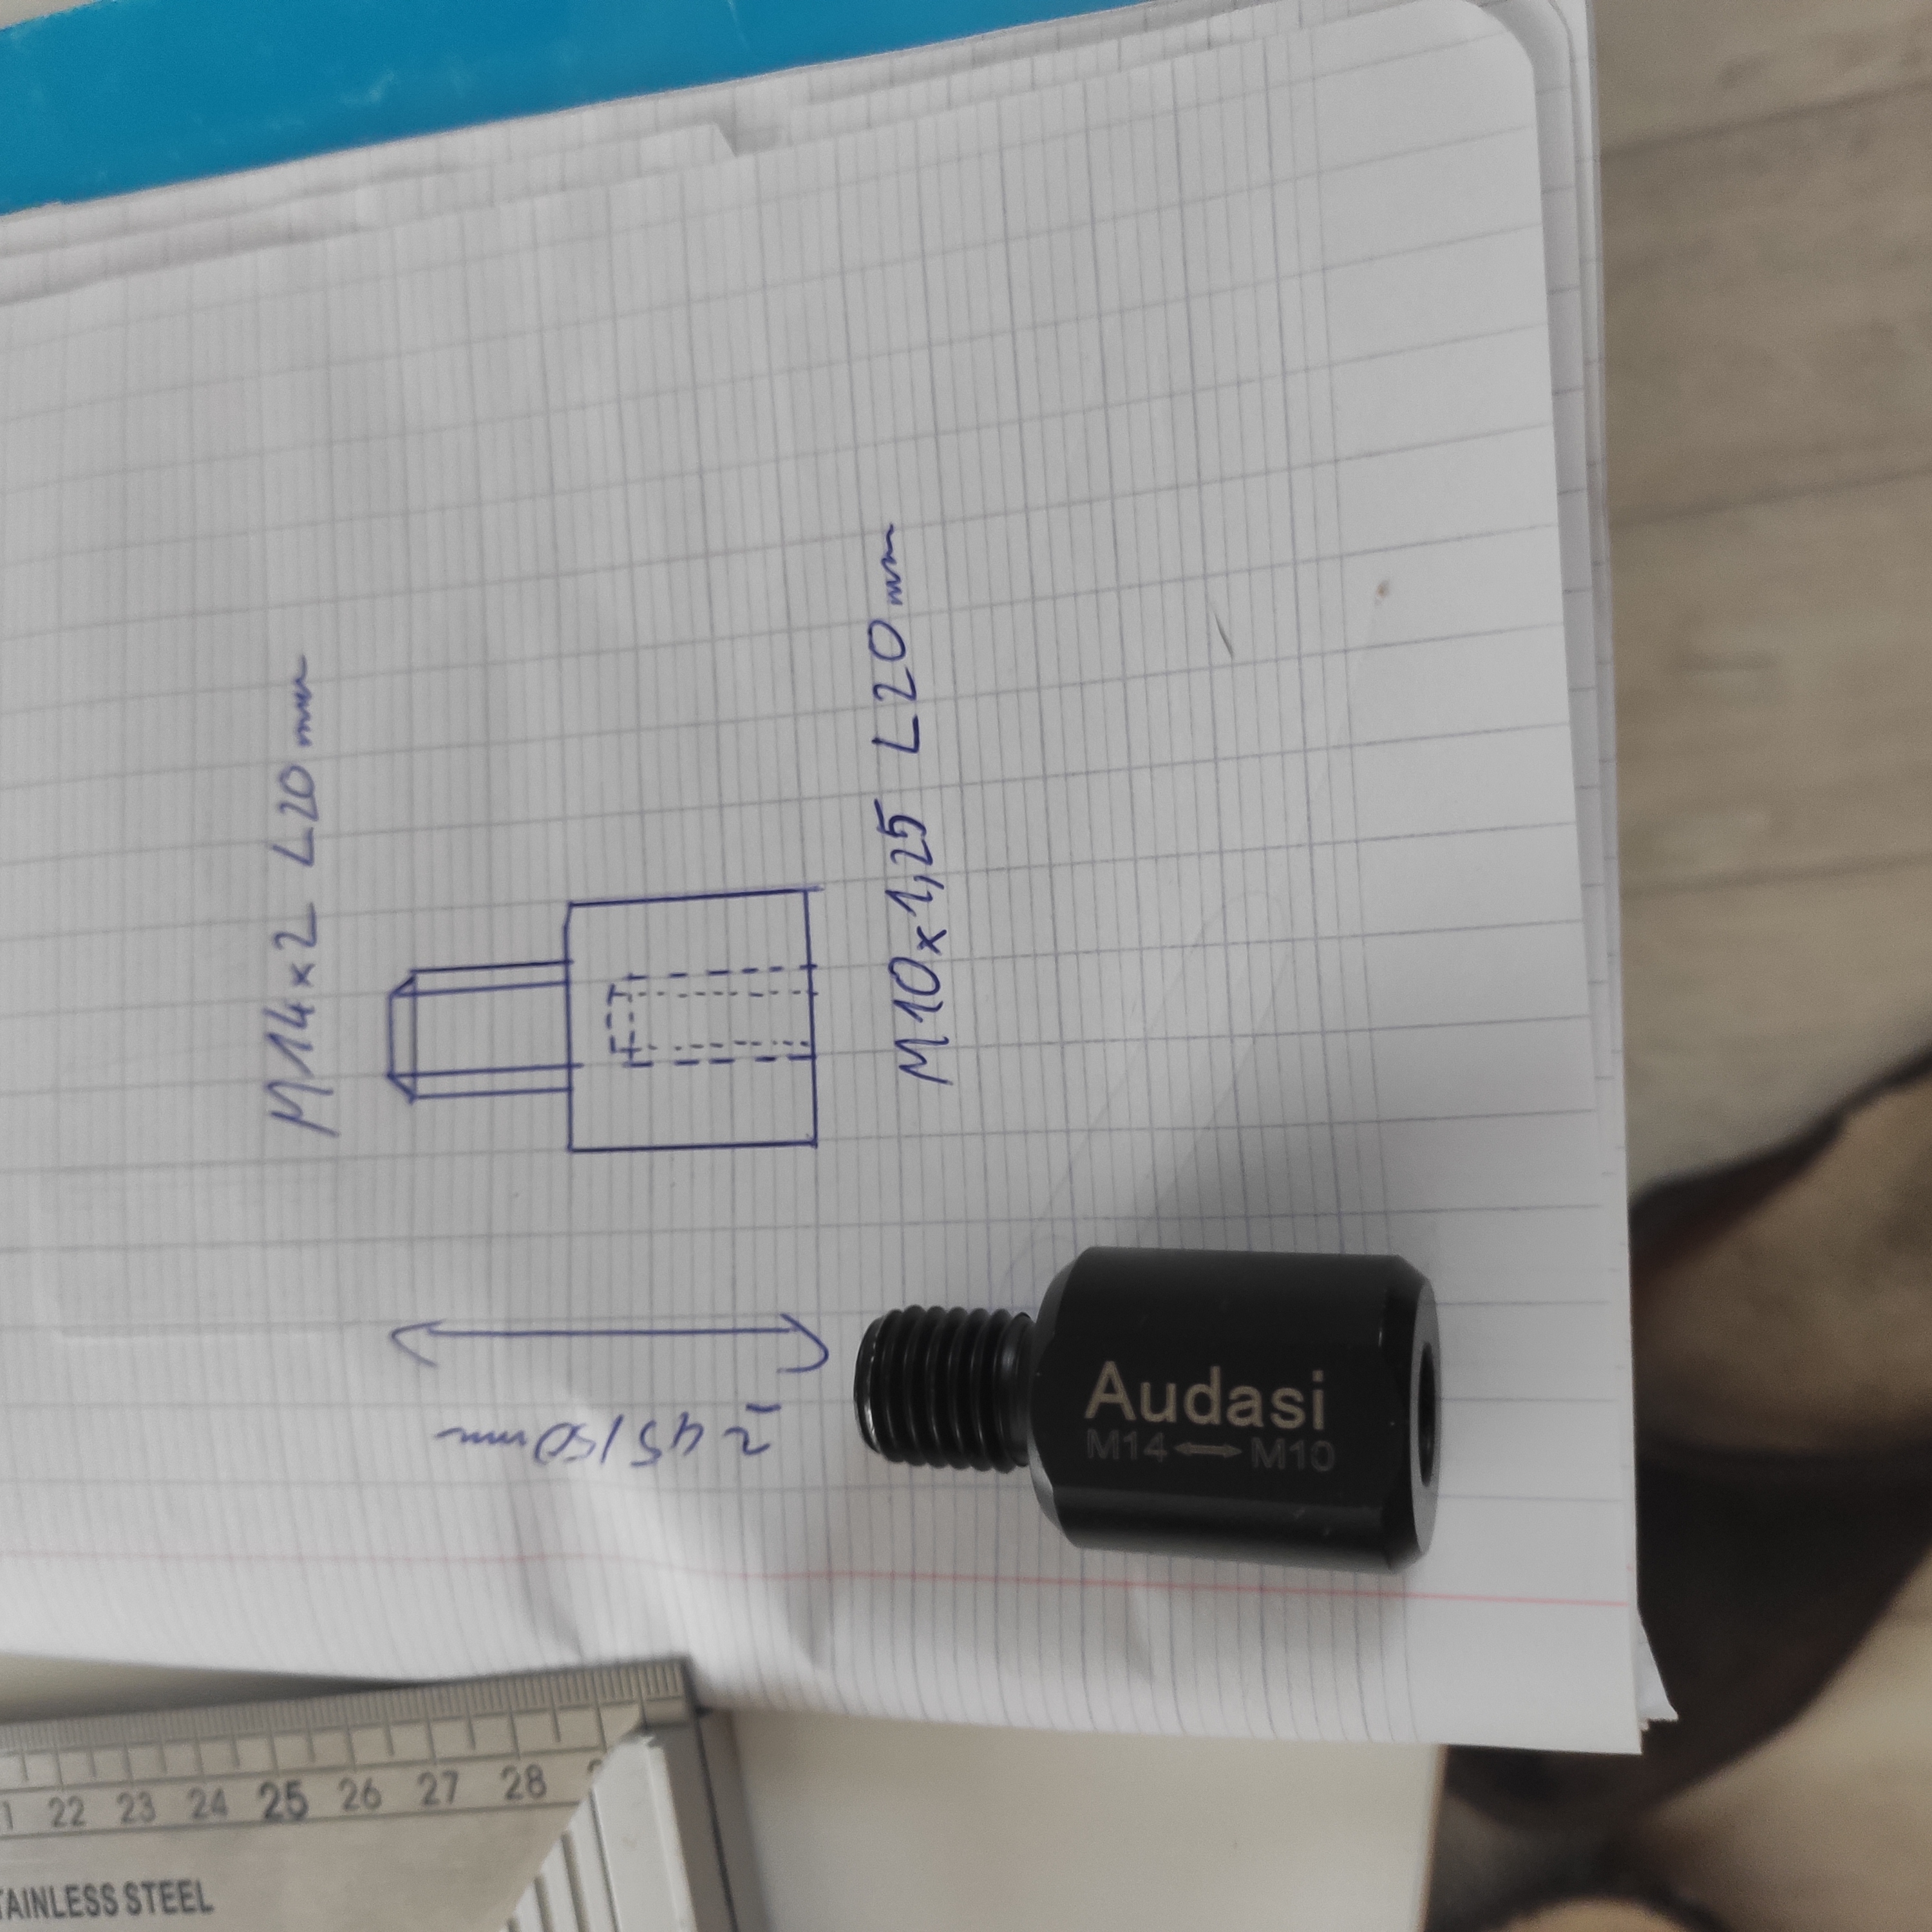 STAINLESS STEEL
22 23 24 25 26 27 28
M14x2 L20mm
~ 45/50mm
M10x1,25 L20mm
Audasi
M14⟷M10